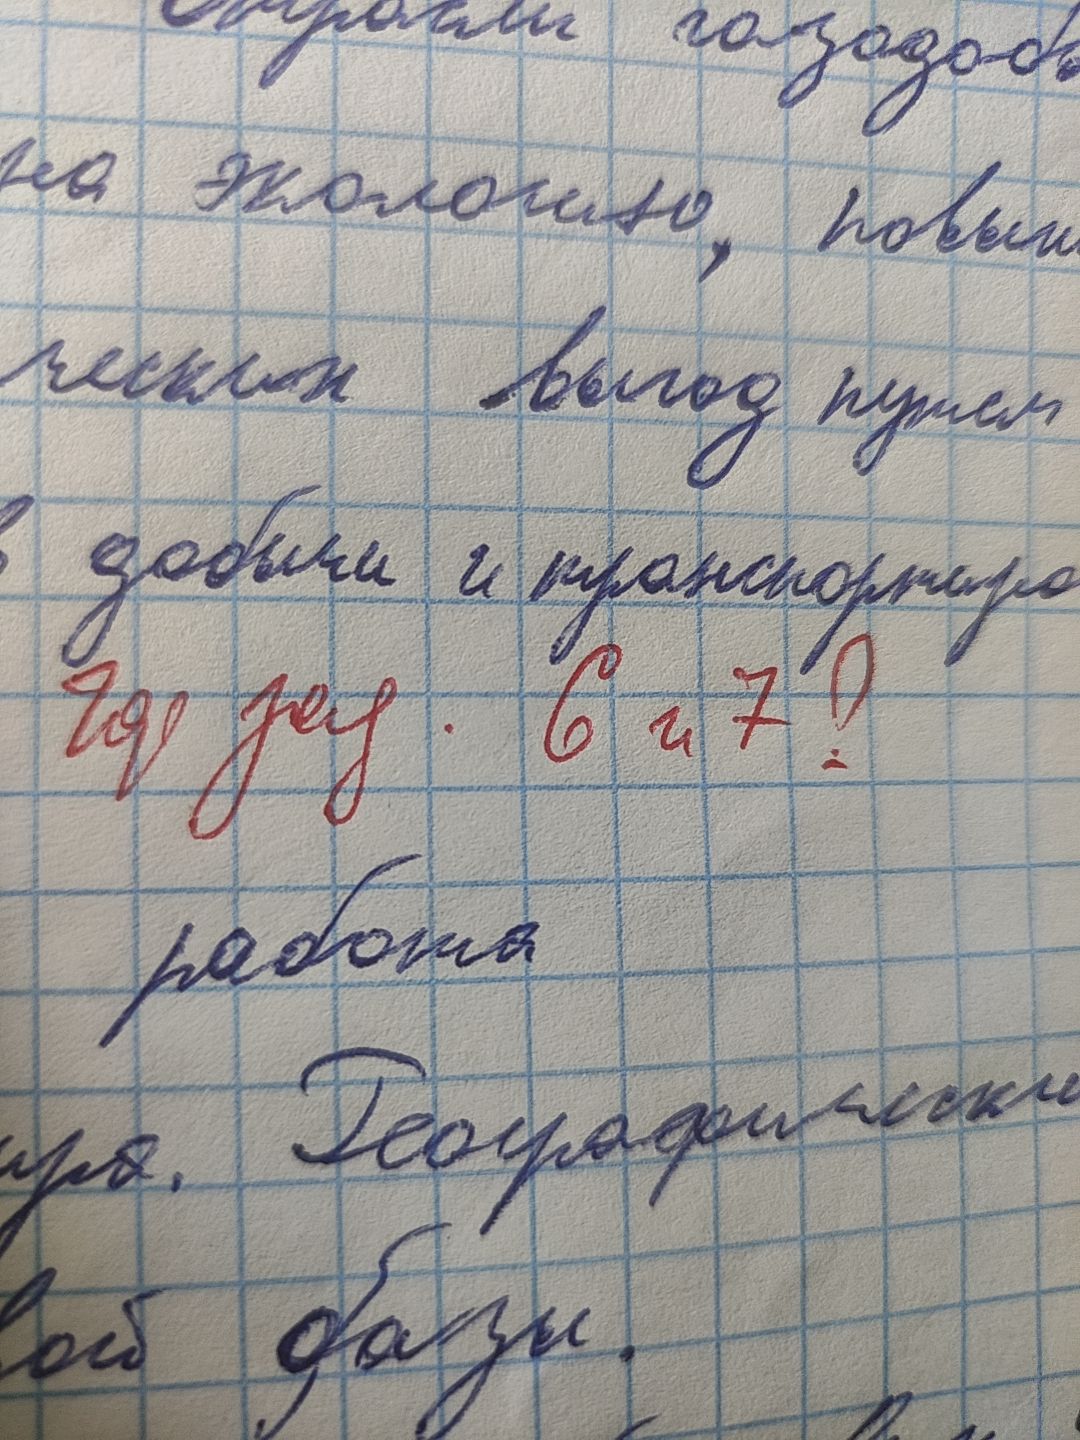 отрасли газодобы
на экологию, повыш
ческих выгод путем
в добычи и транспортиро
Где зад. 6 и 7?
работа
ира. Географически
вой базы.